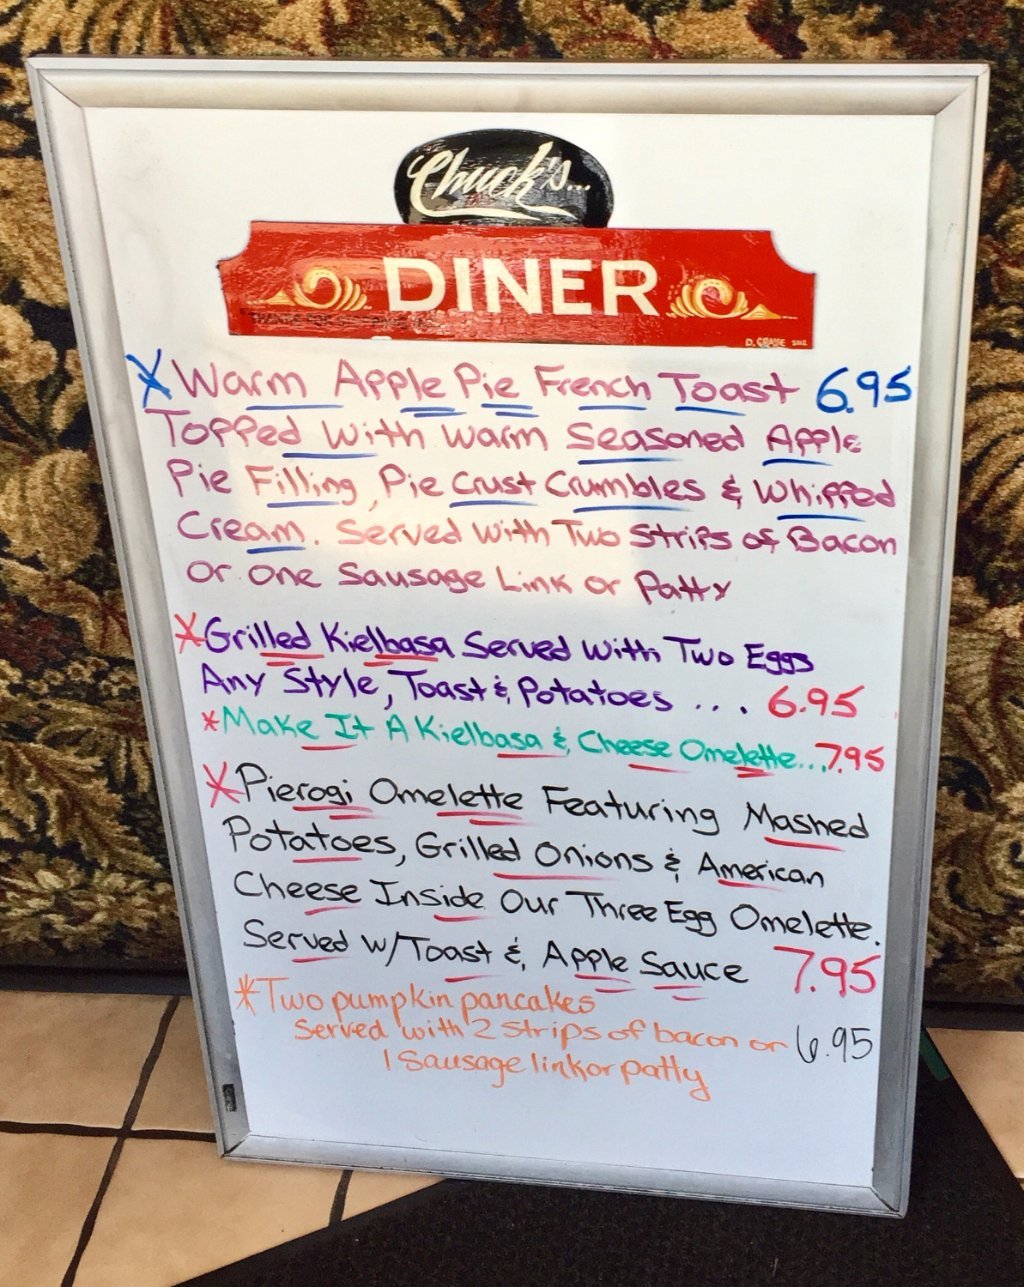 Chuck's...
DINER
D. GRASSE 2012
*Warm Apple Pie French Toast 6.95
Topped with warm Seasoned Apple
Pie Filling, Pie Crust Crumbles & Whipped
Cream. Served with Two Strips of Bacon
or one Sausage Link or Patty
*Grilled Kielbasa Served with Two Eggs
Any Style, Toast & Potatoes ... 6.95
*Make It A Kielbasa & Cheese Omelette...7.95
*Pierogi Omelette Featuring Mashed
Potatoes, Grilled Onions & American
Cheese Inside Our Three Egg Omelette.
Served w/Toast &, Apple Sauce 7.95
*Two pumpkin pancakes
Served with 2 strips of bacon or 6.95
1 Sausage link or patty